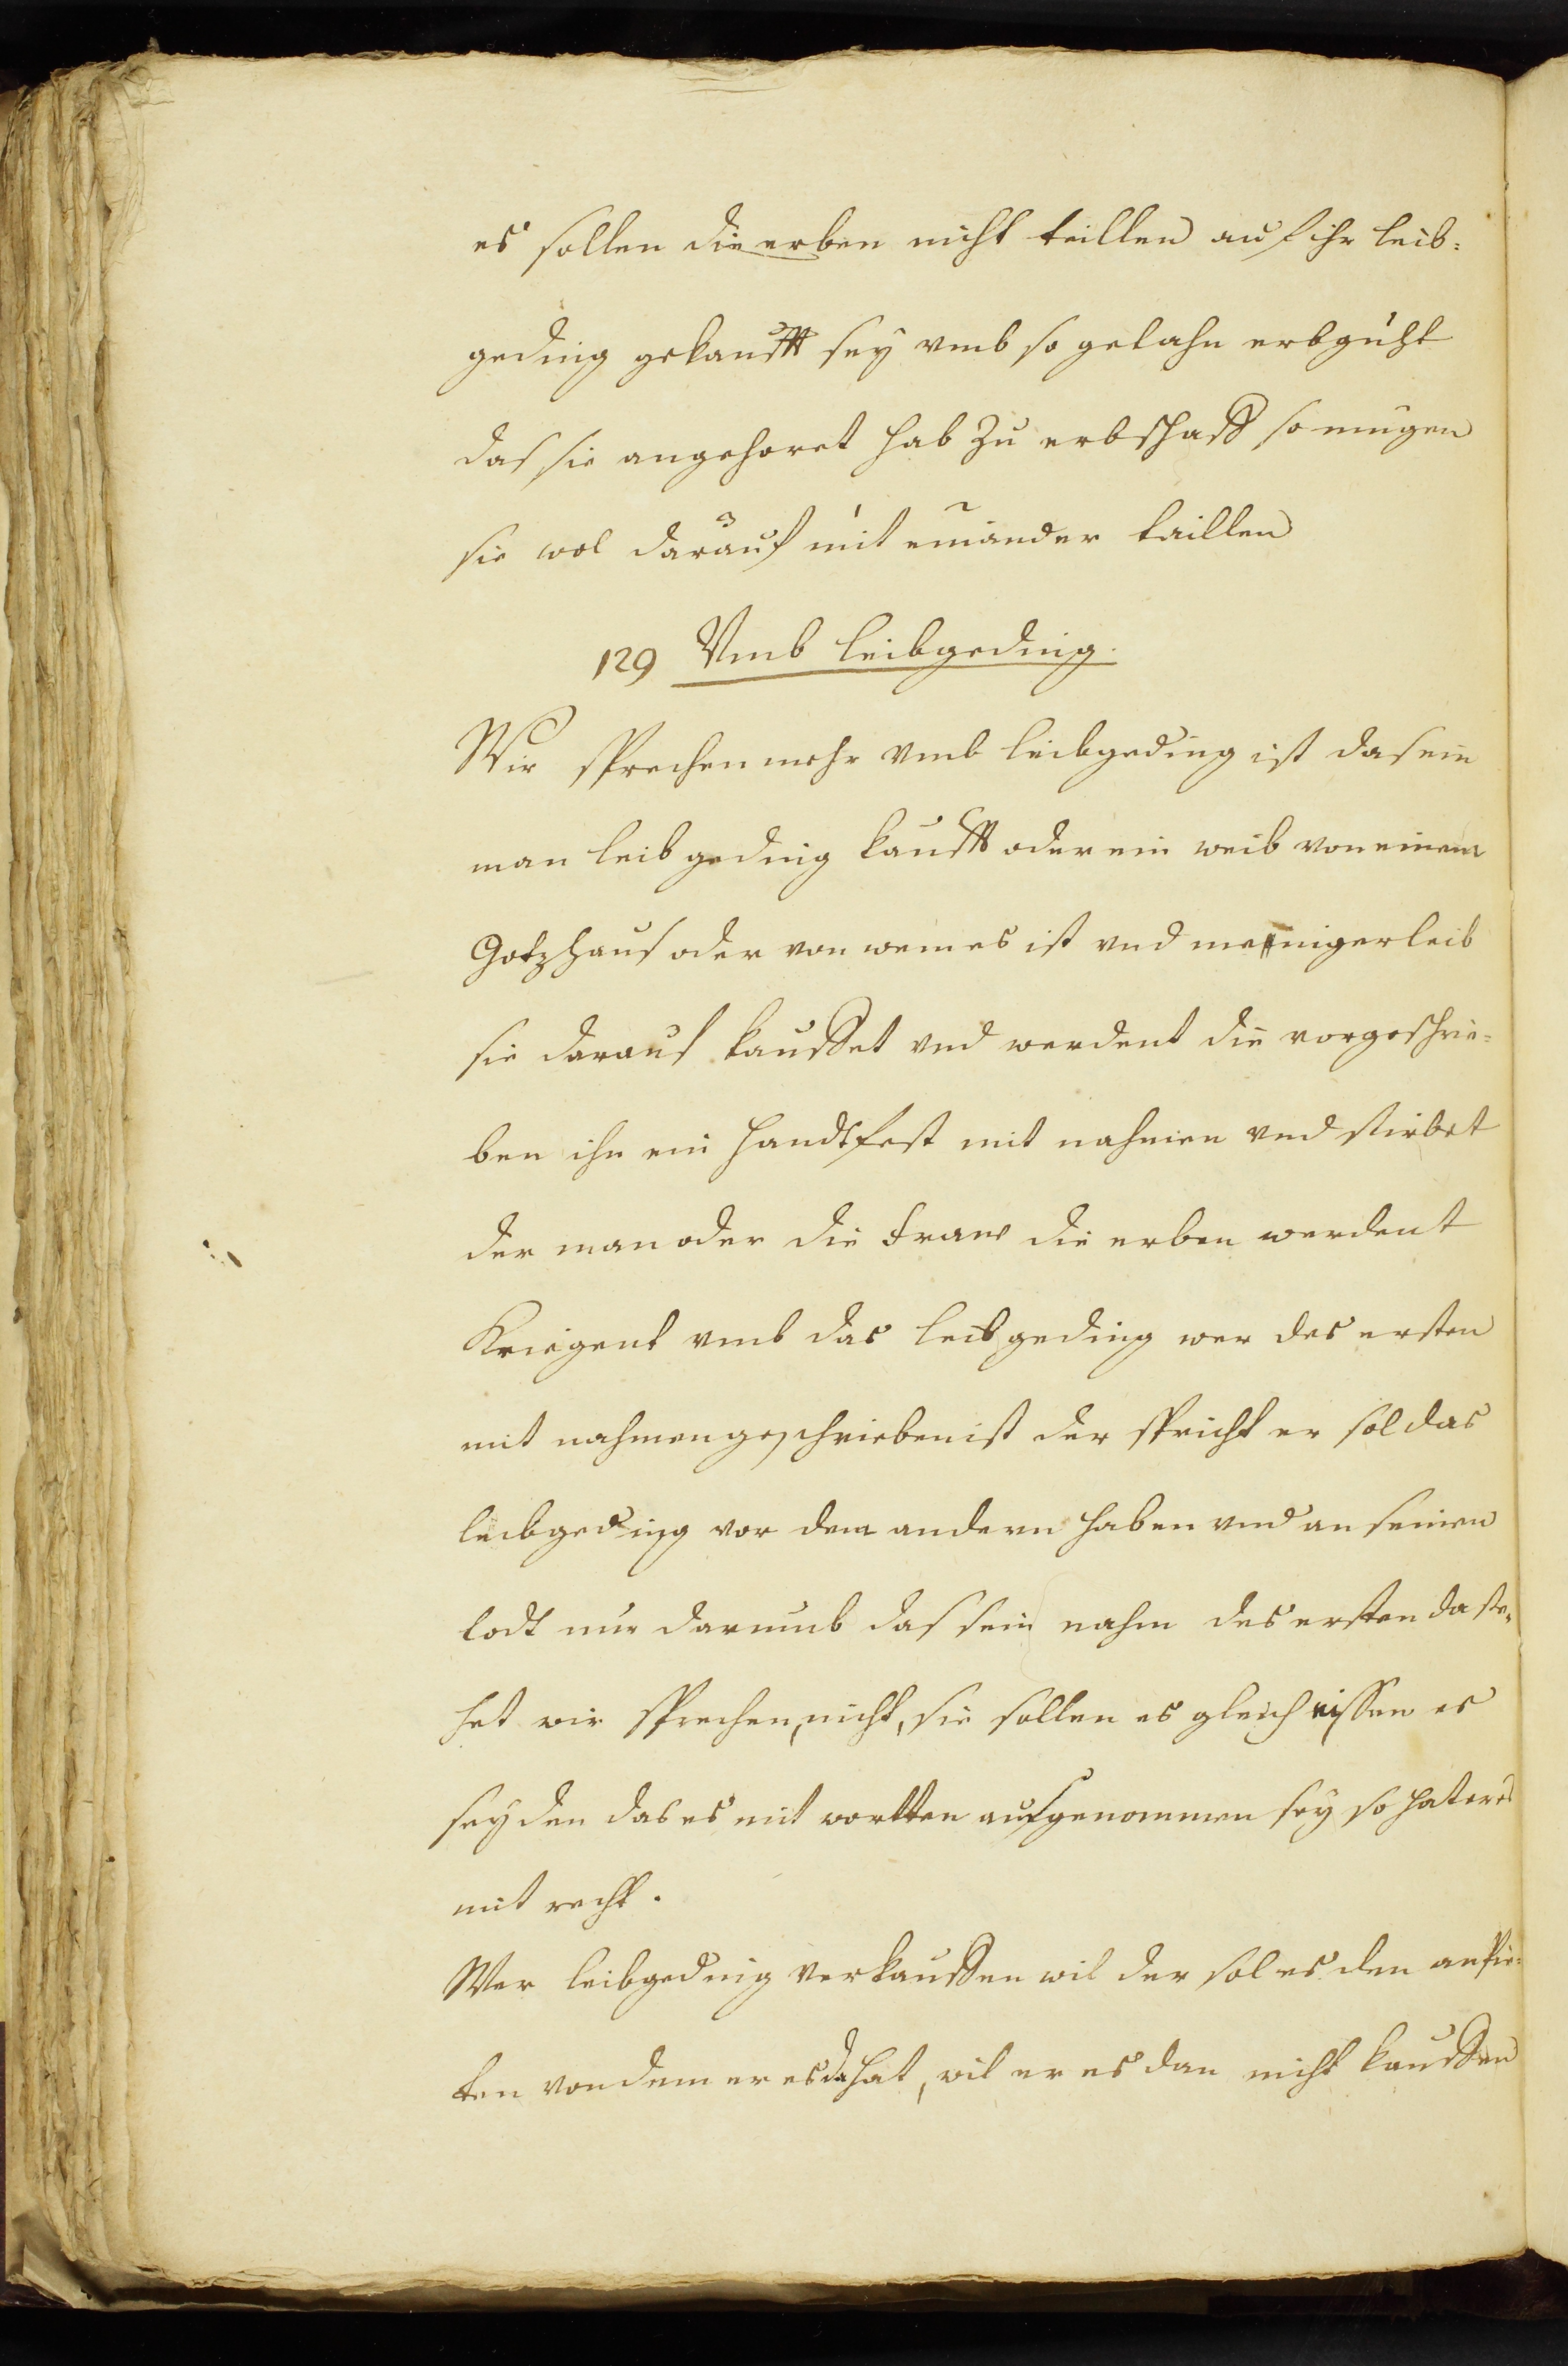 es sollen die erben nicht teillen auf ihr leib=
geding gekaufft sey vmb so getahn erbguht
das sie angehoret hab zu erbschafft so mugen
sie wol darauf mit einander taillen
129 Vmb leibgeding.
Wir sprechen mehr vmb leibgeding ist das ein
man leib geding kaufft oder ein weib von einem
Gotzhaus oder von wem es ist vnd meniger leib
sie darauf kauffet vnd werdent die vorgeschrie=
ben ihn ein handtfest mit nahmen vnd stirbet
der man oder die fraw die erben werdent
Kriegent vmb das leibgeding wer des ersten
mit nahmen geschrieben ist der spricht er sol das
leibgeding vor dem andern haben vnd an seinen
todt nur darumb das sein nahm des ersten da ste=
het wir sprechen, nicht, sie sollen es gleich nissen es
sey den das es mit wortten aufgenommen sey so hat er es
mit recht.
Wer leibgeding verkauffen wil der sol es dem anpie=
ten von dem er es da hat, wil er es dan nicht kauffen